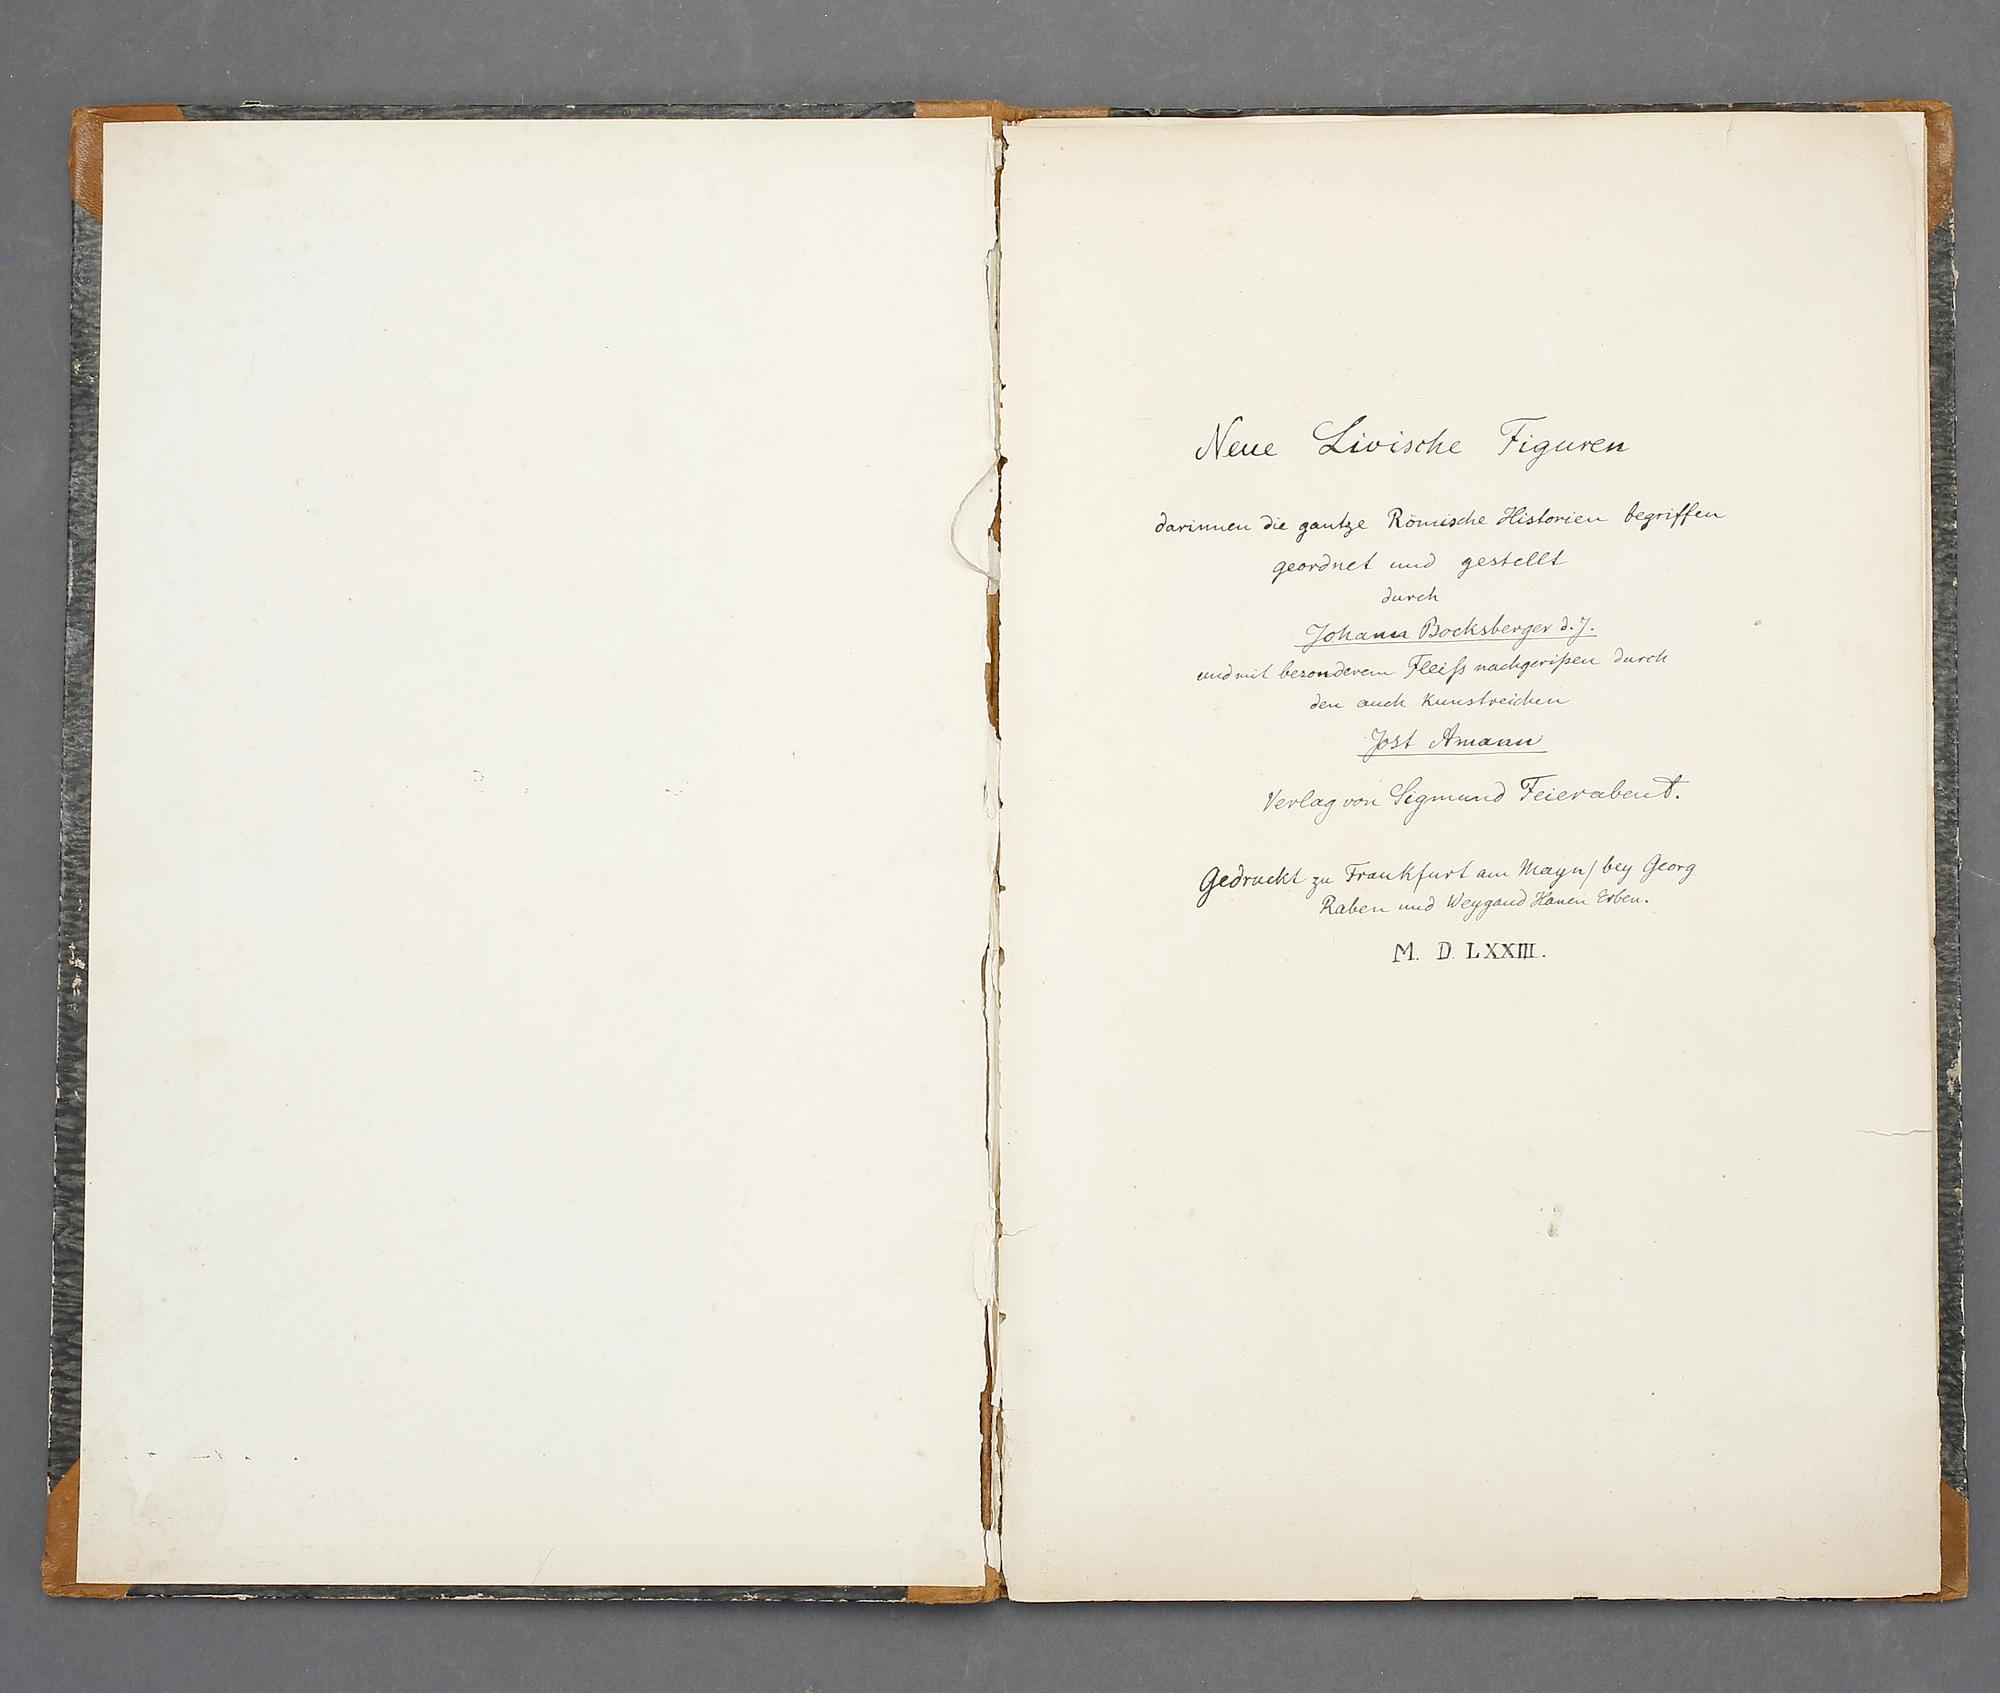 Neue Livische Figuren
darinnen die gantze Römische Historien begriffen
geordnet und gestellt
durch
Johann Bocksberger d. J.
und mit besonderem Fleiss nachgerißen durch
den auch Kunstreichen
Jost Amann
Verlag von Sigmund Feierabent.
Gedruckt zu Frankfurt am Mayn / bey Georg
Raben und Weygand Hanen Erben.
M. D. LXXIII.